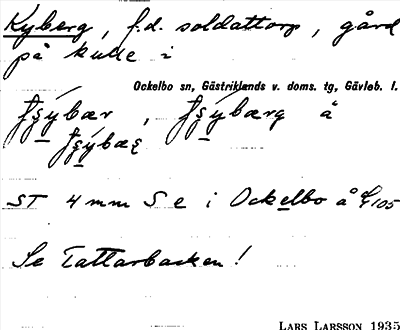 Kyberg, f.d. soldattorp, gård
på kulle i
Ockelbo sn, Gästriklands v. doms. tg, Gävleb. l.
å
ST 4 mm S e i Ockelbo å
Se Tattarbacken!
LARS LARSSON 1935